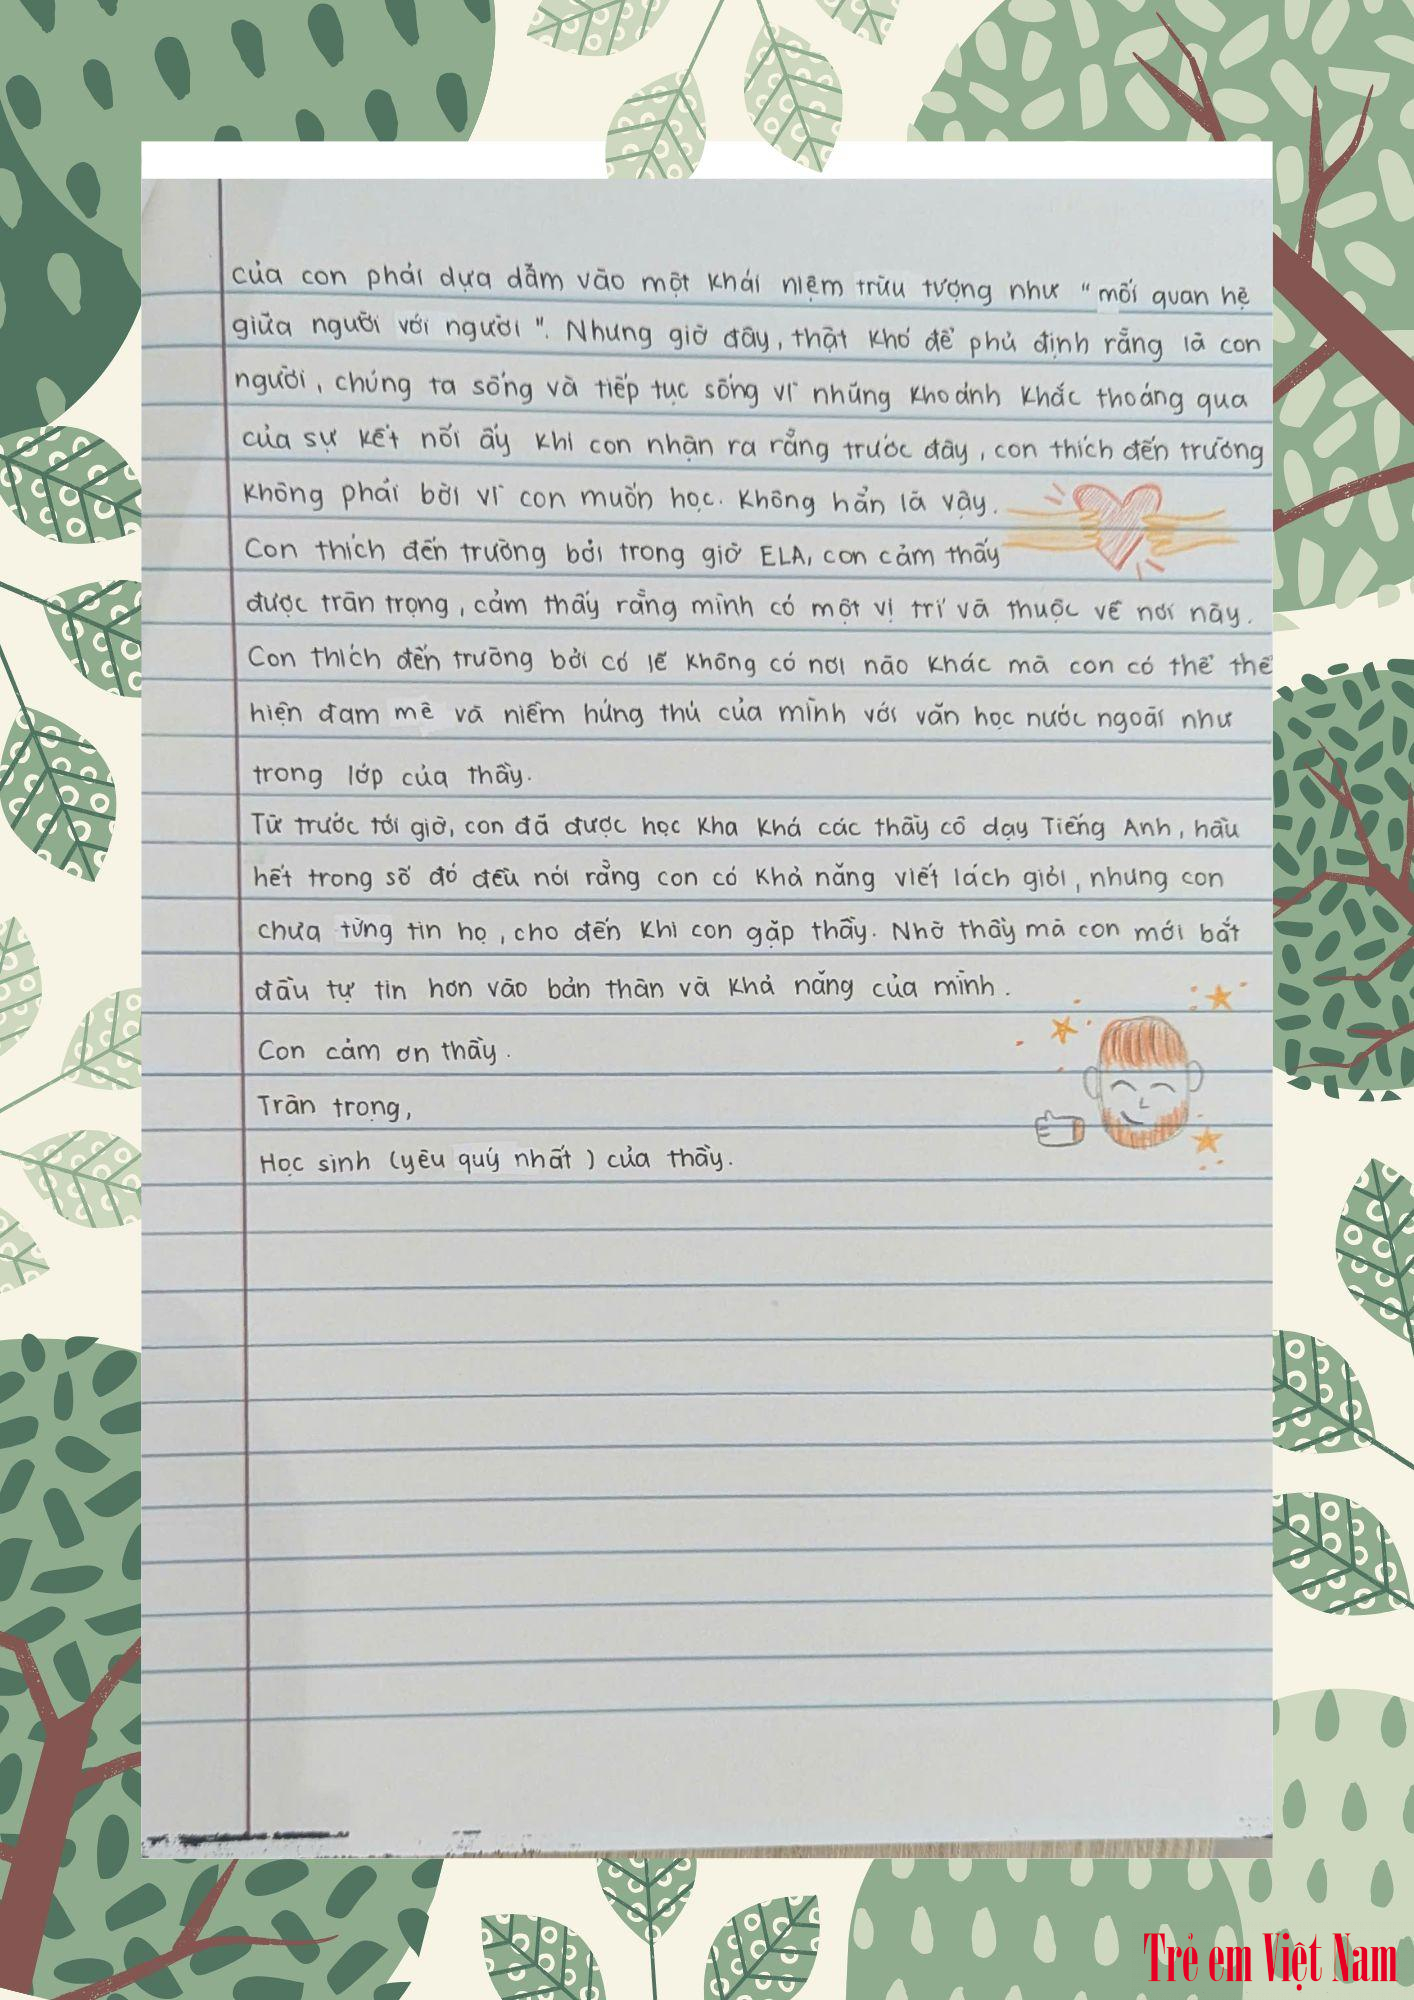 của con phải dựa dẫm vào một khái niệm trừu tượng như "mối quan hệ
giữa người với người". Nhưng giờ đây, thật khó để phủ định rằng là con
người, chúng ta sống và tiếp tục sống vì những khoảnh khắc thoáng qua
của sự kết nối ấy khi con nhận ra rằng trước đây, con thích đến trường
không phải bởi vì con muốn học. Không hẳn là vậy.
Con thích đến trường bởi trong giờ ELA, con cảm thấy
được trân trọng, cảm thấy rằng mình có một vị trí và thuộc về nơi này.
Con thích đến trường bởi có lẽ không có nơi nào khác mà con có thể thể
hiện đam mê và niềm hứng thú của mình với văn học nước ngoài như
trong lớp của thầy.
Từ trước tới giờ, con đã được học kha khá các thầy cô dạy Tiếng Anh, hầu
hết trong số đó đều nói rằng con có khả năng viết lách giỏi, nhưng con
chưa từng tin họ, cho đến khi con gặp thầy. Nhờ thầy mà con mới bắt
đầu tự tin hơn vào bản thân và khả năng của mình.
Con cảm ơn thầy.
Trân trọng,
Học sinh (yêu quý nhất) của thầy.
Trẻ em Việt Nam